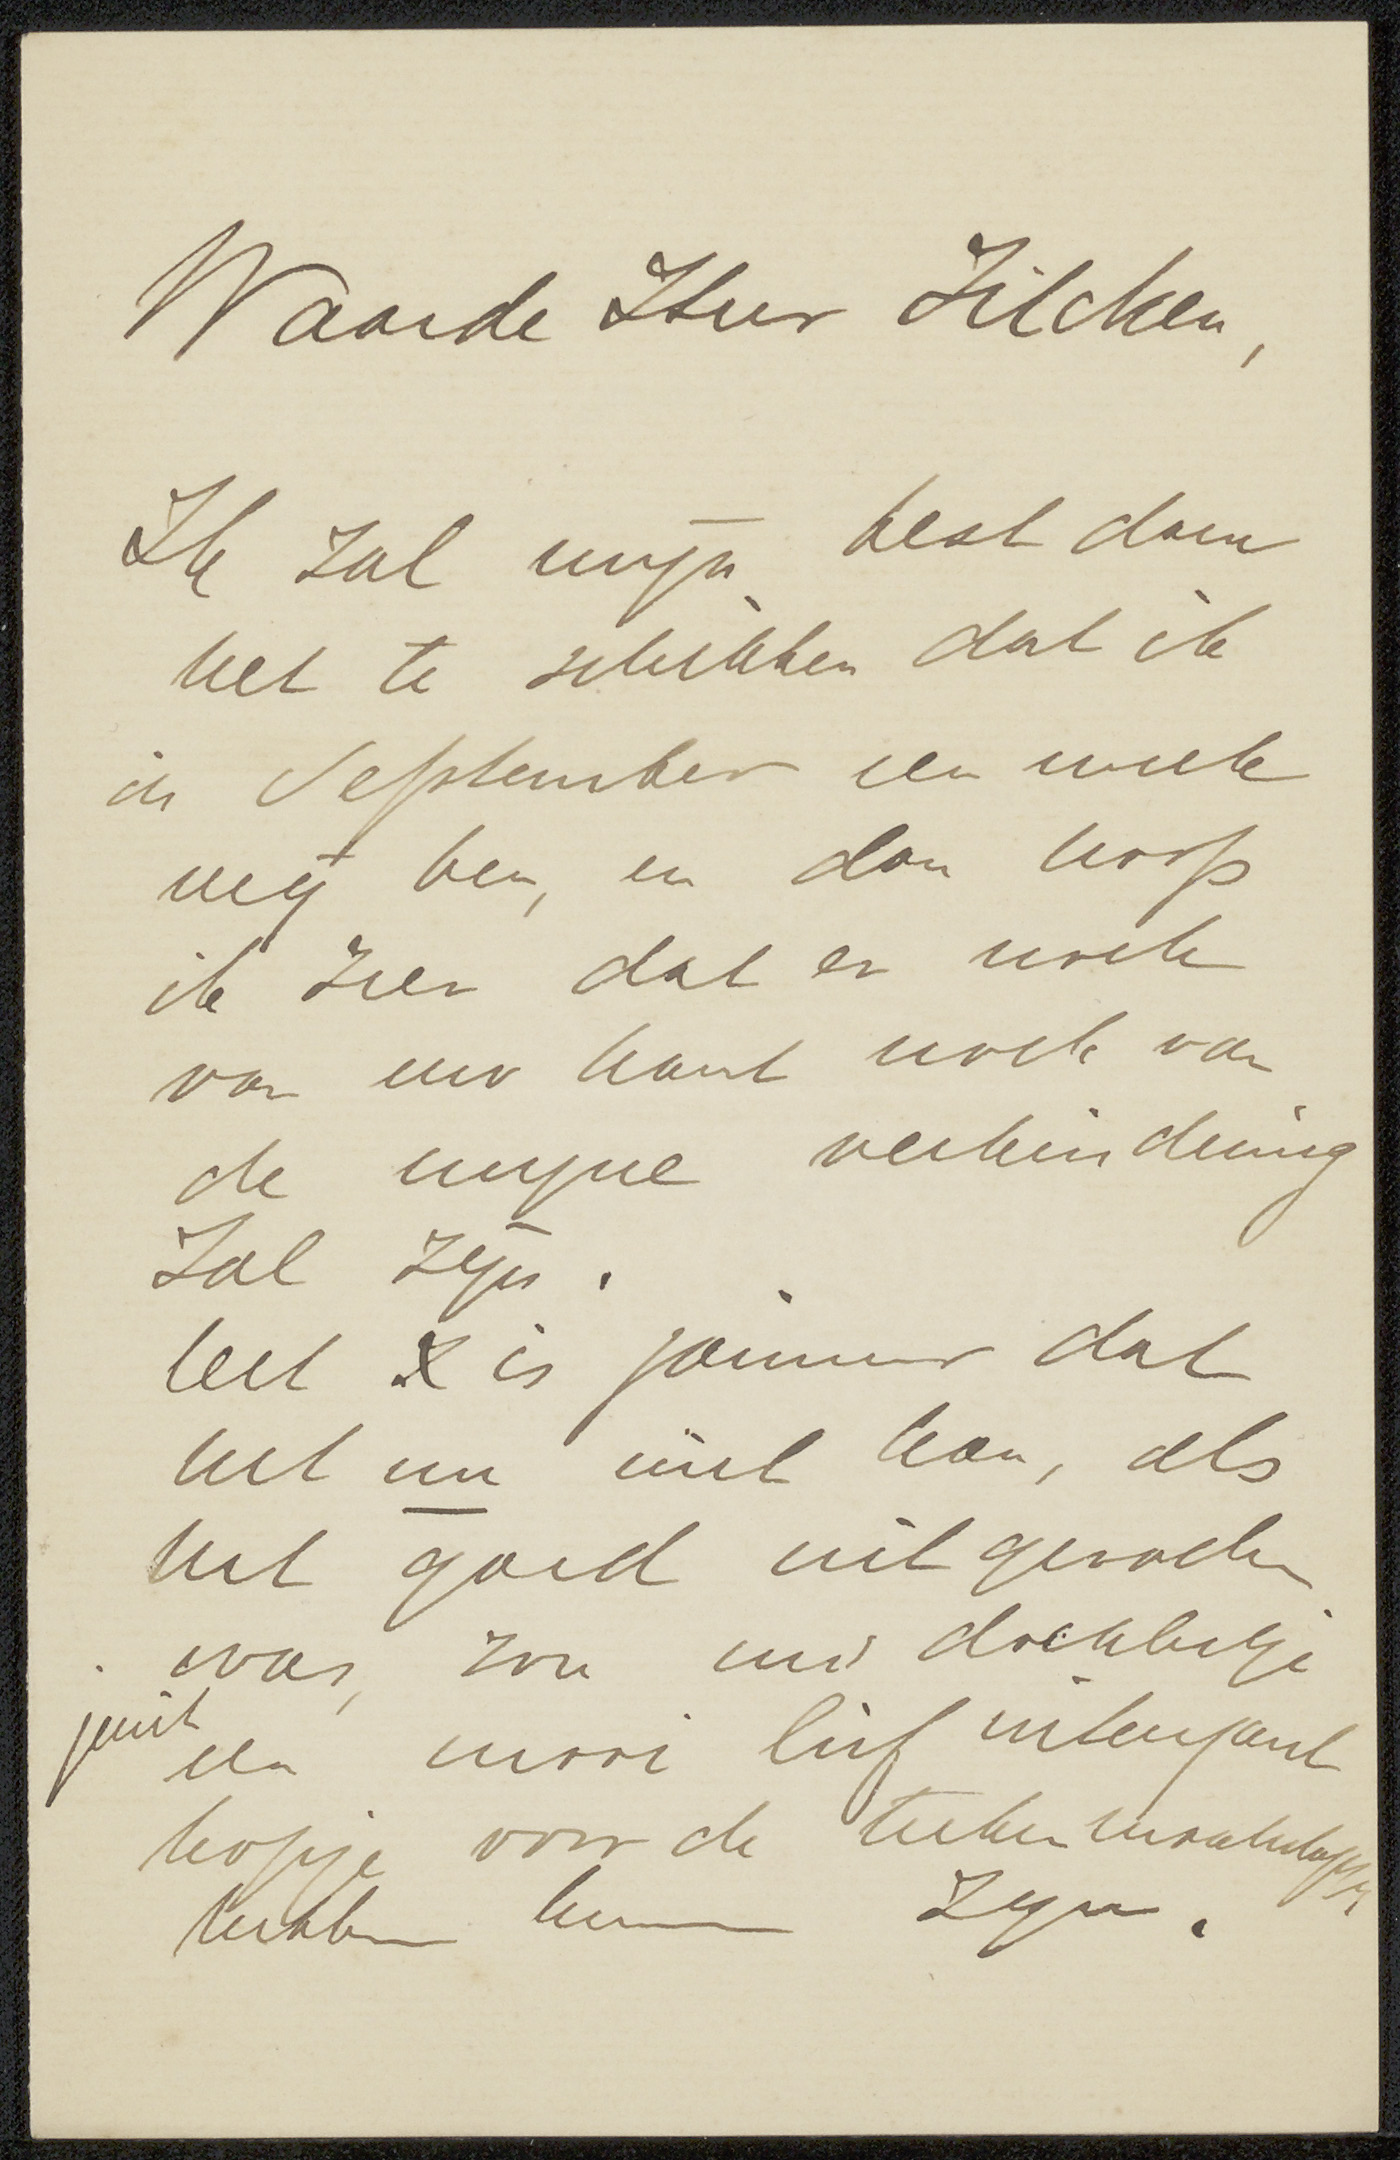 Waarde Heer Zilcken,
Ik zal mijn best doen
het te schikken dat ik
in September een week
vrij ben, en dan hoop
ik zeer dat er noch
van uw kant noch van
de mijne verhindering
zal zijn.
het is jammer dat
het nu niet kan, als
het goed uitgevallen
was, zou uw dochtertje
juist
een mooi lief interessant
kopje voor de
hebben kunnen zijn.